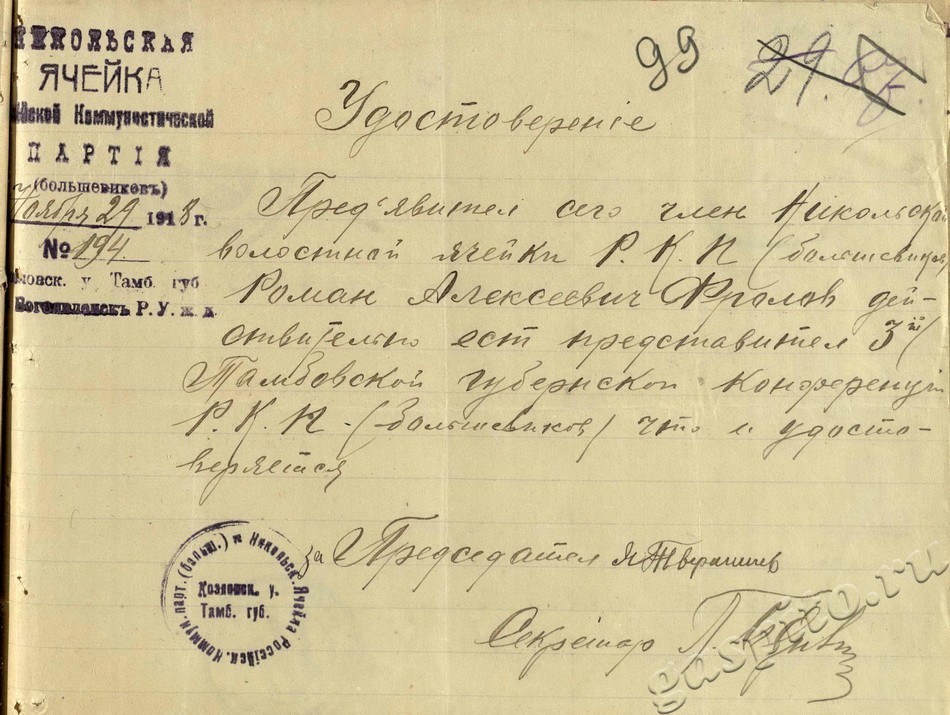 НИКОЛЬСКАЯ
ЯЧЕЙКА
ской Коммунистической
ПАРТІЯ
(большевиковъ)
Ноября 29 1918 г.
№ 194.
ловск. у. Тамб. губ
Богоявленскъ Р. У. ж. д.
99
29.
Удостоверение
Пред'явител сего член Никольской
волостной ячейки Р. К. П (большевиков)
Роман Алексеевич Фролов дей-
ствительно ест представител 3й
Тамбовской губернской конференции
Р. К. П. (большевиков) что и удосто-
веряется
за Председател
Секретар
Никольск. Ячейка Россійск. Коммун. парт. (больш.)
Козловск. у.
Тамб. губ.
gaspito.ru